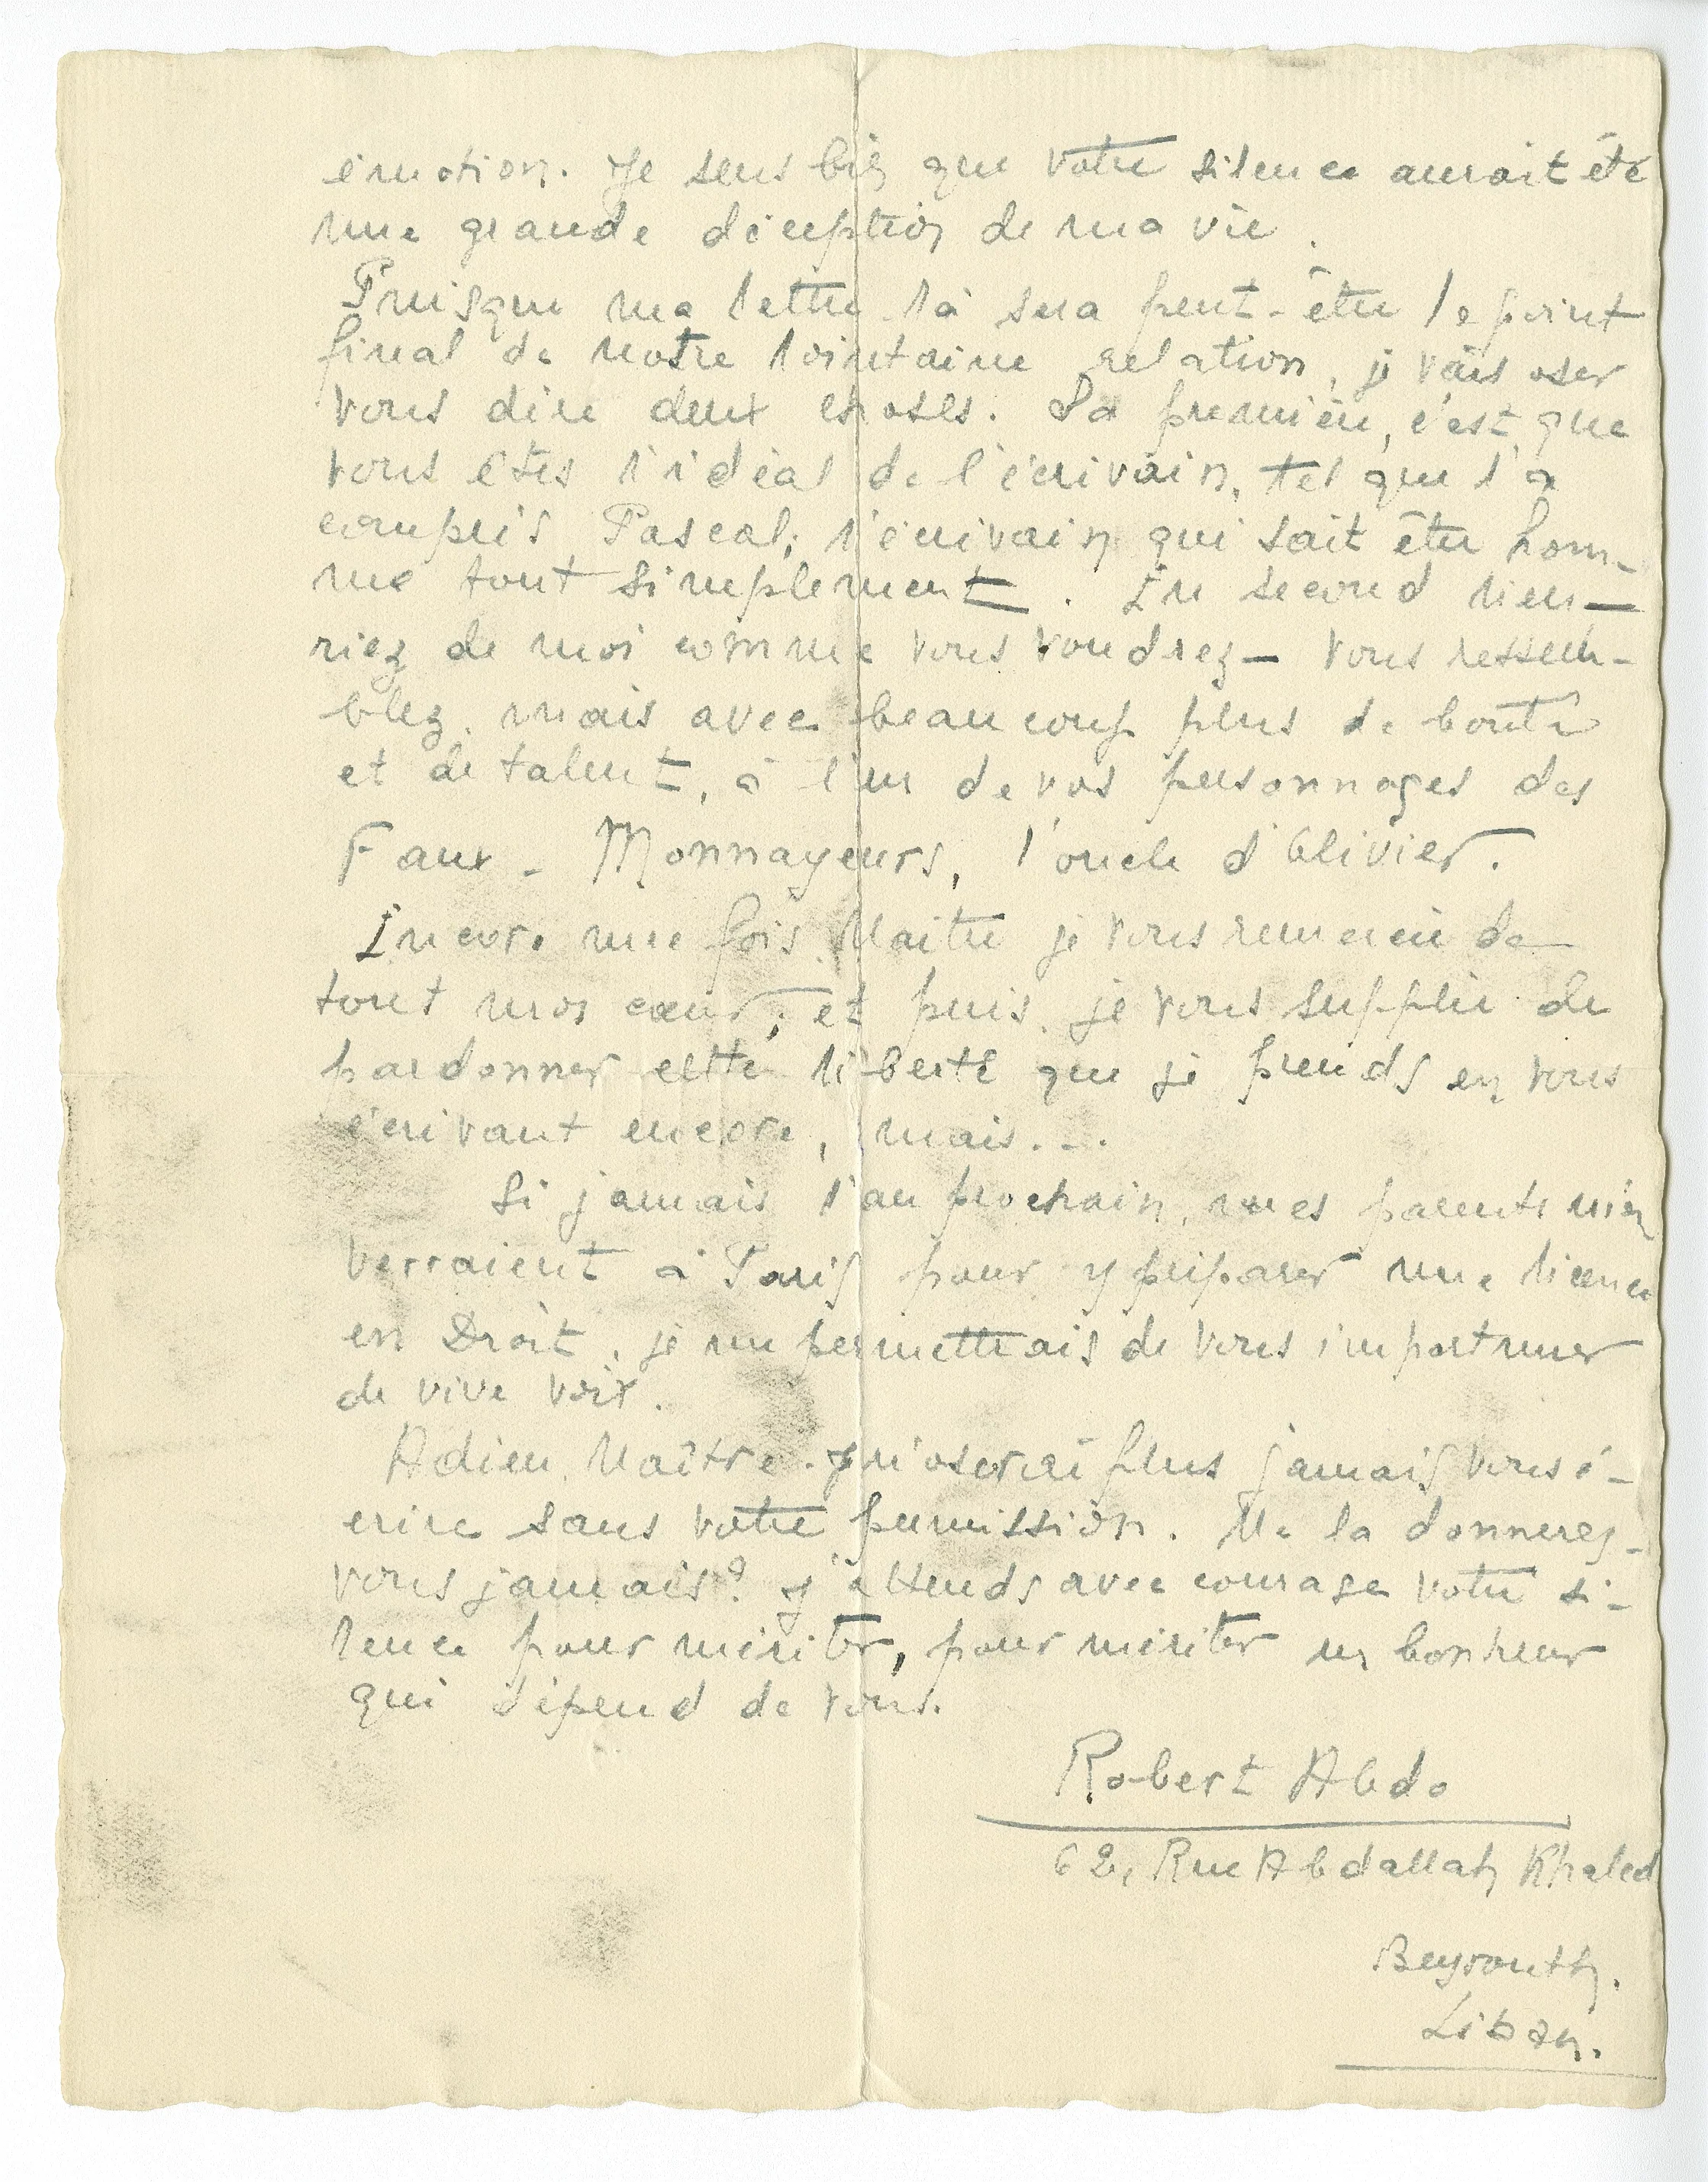 émotion. Je sens bien que votre silence aurait été
une grande déception de ma vie.
Puisque ma lettre-là sera peut-être le point
final de notre lointaine relation, je vais oser
vous dire deux choses. La première, c'est que
vous êtes l'idéal de l'écrivain, tel que l'a
compris Pascal; l'écrivain qui sait être hom-
me tout simplement. En second lieu —
riez de moi comme vous voudrez — vous ressem-
blez, mais avec beaucoup plus de bonté
et de talent, à l'un de vos personnages des
Faux-Monnayeurs, l'oncle d'Olivier.
Encore une fois, Maître je vous remercie de
tout mon cœur, et puis, je vous supplie de
pardonner cette liberté que je prends en vous
écrivant encore, mais...
Si jamais l'an prochain, mes parents m'en
verraient à Paris pour y préparer une licence
en Droit, je me permettrais de vous importuner
de vive voix.
Adieu, Maître. Je n'oserai plus jamais vous é-
crire sans votre permission. Me la donnerez-
vous jamais? J'attends avec courage votre si-
lence pour mériter, pour mériter un bonheur
qui dépend de vous.
Robert Abdo
62, Rue Abdallah Khaled
Beyrouth.
Liban.